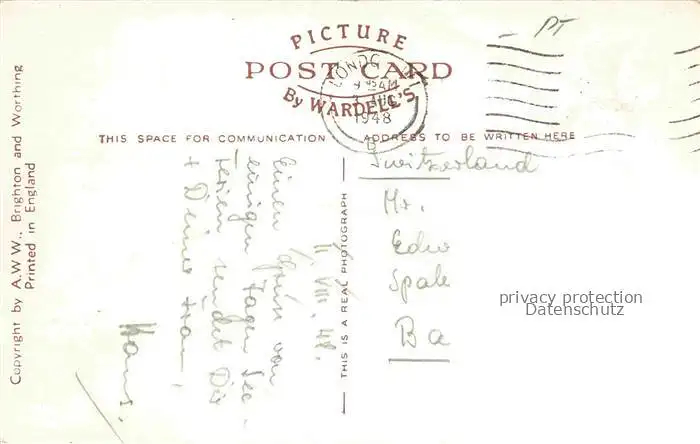 PT
PICTURE
POST CARD
By WARDELL'S
LONDO
AM
1948
B
THIS SPACE FOR COMMUNICATION
ADDRESS TO BE WRITTEN HERE
Copyright by A.W.W., Brighton and Worthing
Printed in England
THIS IS A REAL PHOTOGRAPH
Switzerland
Mr.
Edw
Spale
Ba
privacy protection
Datenschutz
VIII. 48.
Einen Gruss von
einigen Tagen See-
ferien sendet Dir
+ Deiner Frau,
Hans.